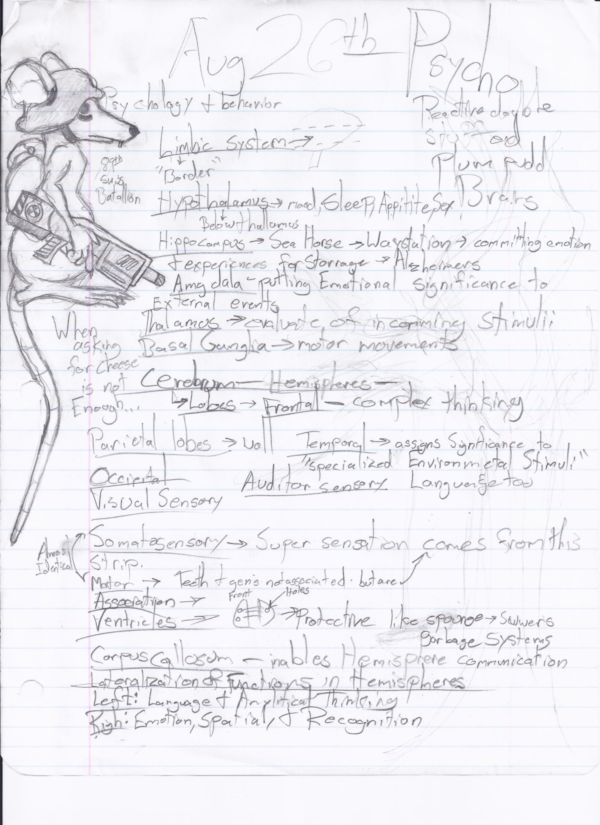 Aug 26th Psycho
Psychology & behavior
Reactive
Plum pudd
Brains
Limbic System →
"Border"
Batallion
Hypothalamus → mood, Sleep, Appitite Sex,
Below thallamus
Hippocampus → Sea Horse → Waystation → committing emotion
& experiences for storrage → Alzheimers
Amgdala - putting Emotional significance to
External events
Thalamus → evaluate of incomming Stimulii
Basal Ganglia → motor movements
When
asking
for cheese
is not
Enough...
Cerebrum — Hemispheres —
→ Lobes → Frontal — complex thinking
Parietal lobes → Temporal → assigns Significance to
"specialized Enviornmetal Stimuli"
Occipital
Auditor sensory Language too
Visual Sensory
Almost
Identical
Somatosensory → Super sensation comes from this
Strip.
Motor → Teeth & genis not associated but are
Association →
Front Holes
Ventricles → Protective like sponge → Suwers
garbage Systems
Corpus Callosum — inables Hemisphere communication
Lateralization of Functions in Hemispheres
Left: Language & Anylitical Thinking
Righ: Emotion, Spatial, & Recognition